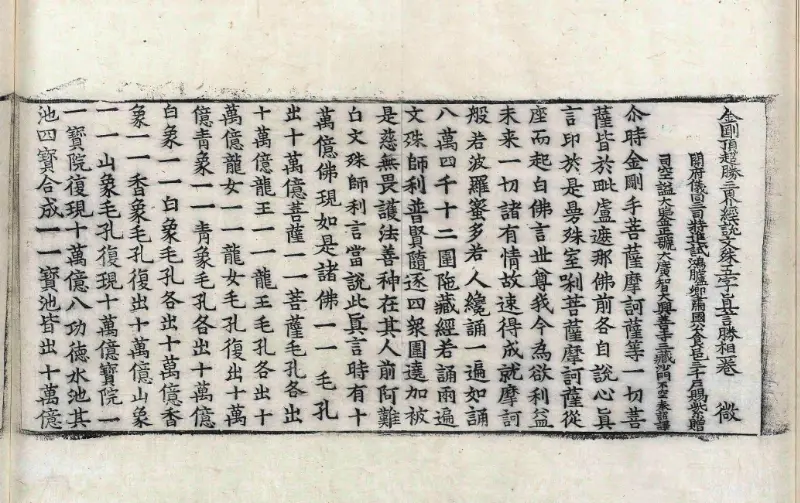 金剛頂超勝三界經說文殊五字真言勝相一卷 微
開府儀同三司特進試鴻臚卿肅國公食邑三千戶賜紫贈
司空謚大鑒正號大廣智大興善寺三藏沙門不空奉詔譯
尒時金剛手菩薩摩訶薩等一切菩
薩皆於毗盧遮那佛前各自說心真
言印於是曼殊室唎菩薩摩訶薩從
座而起白佛言世尊我今為欲利益
未来一切諸有情故速得成就摩訶
般若波羅蜜多若人纔誦一遍如誦
八萬四千十二圍陁藏經若誦兩遍
文殊師利普賢隨逐四衆圍遶加被
是慈無畏護法善神在其人前阿難
白文殊師利言當說此真言時有十
萬億佛現如是諸佛一一毛孔
出十萬億菩薩一一菩薩毛孔各出
十萬億龍王一一龍王毛孔各出十
萬億龍女一一龍女毛孔復出十萬
億青象一一青象毛孔各出十萬億
白象一一白象毛孔各出十萬億香
象一一香象毛孔復出十萬億山象
一一山象毛孔復現十萬億寶院一
一寶院復現十萬億八功德水池其
池四寶合成一一寶池皆出十萬億